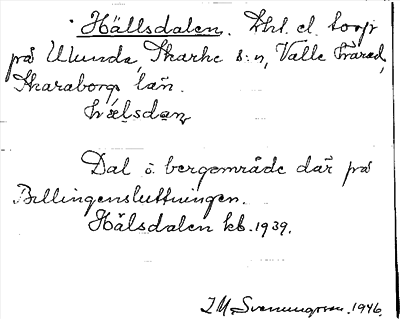 Hällsdalen. Lht. el. torp
på Ulunda, Skarke s:n, Valle härad,
Skaraborgs län.
hælsdan
Dal o. bergområde där på
Billingensluttningen.
Hälsdalen kb. 1939.
I.M. Svenungsson. 1946.